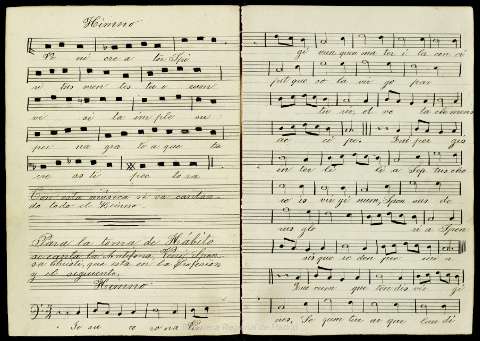 Himno
Ve ni cre a tor Spi
ri tus men tes tu o rum
vi si ta im ple su
per na gra ti a que tu
cre as ti pec to ra
Con esta música se va cantan
do todo el Himno.
Para la toma de Hábito
se canta la Antífona, Veni Spon
sa Christi, que está en la Profesion
y el siguiente.
Himno
Je su co ro na Vir
gi num quem ma ter i la con ci
pit que so la vir go par
tu rit, et vo ta clemens
ac ci pe. Qui per gis
in ter li li a Sep tus cho
re is vir gi num, Spon sus de
cus glo ri a Spon
sis que re dens pre mi a
Quo cum que ten dis vir gi
nes, Se quun tur at que lau di